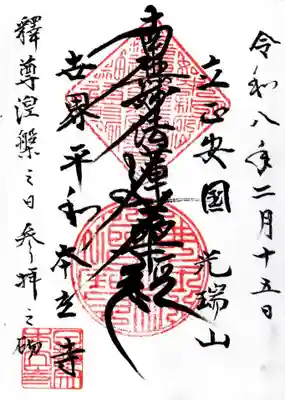 令和八年二月十五日
立正安國 光瑞山
南無妙法蓮華経
世界平和 本立寺
釋尊涅槃之日 参拝之砌